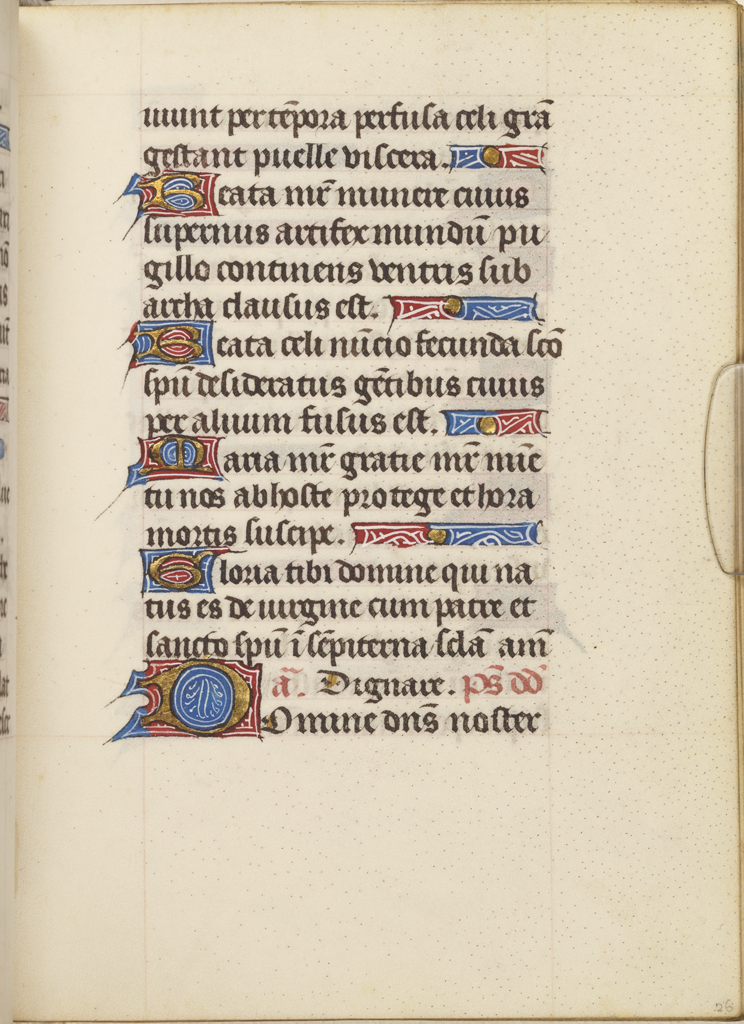 uiunt per tẽpora perfusa celi grã
gestant puelle viscera.
Beata mr̃ munere cuius
supernus artifex mundũ pu
gillo continens ventris sub
archa clausus est.
Beata celi nũcio fecunda scõ
spũ desideratus gẽtibus cuius
per aluum fusus est.
Maria mr̃ gratie mr̃ mĩe
tu nos ab hoste protege et hora
mortis suscipe.
Gloria tibi domine qui na
tus es de uirgine cum patre et
sancto spũ ĩ sẽpiterna sclã am̃
añ. Dignare. ps̃ dd̃
Domine dns̃ noster
26